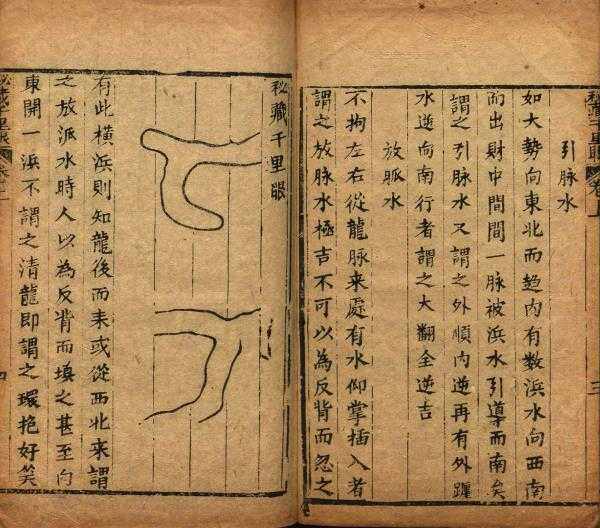 秘藏千里眼 卷上
引脉水
如大勢向東北而趋内有数浜水向西南
而出財中間間一脉被浜水引導而南矣
謂之引脉水又謂之外順内逆再有外躔
水逆向南行者謂之大翻全逆吉
放脈水
不拘左右從龍脉来處有水仰掌插入者
謂之放脉水極吉不可以為反背而忽之
三
秘藏千里眼
有此横浜則知龍後而来或從西北来謂
之放派水時人以為反背而填之甚至向
東開一浜不謂之清龍即謂之環抱好笑
四